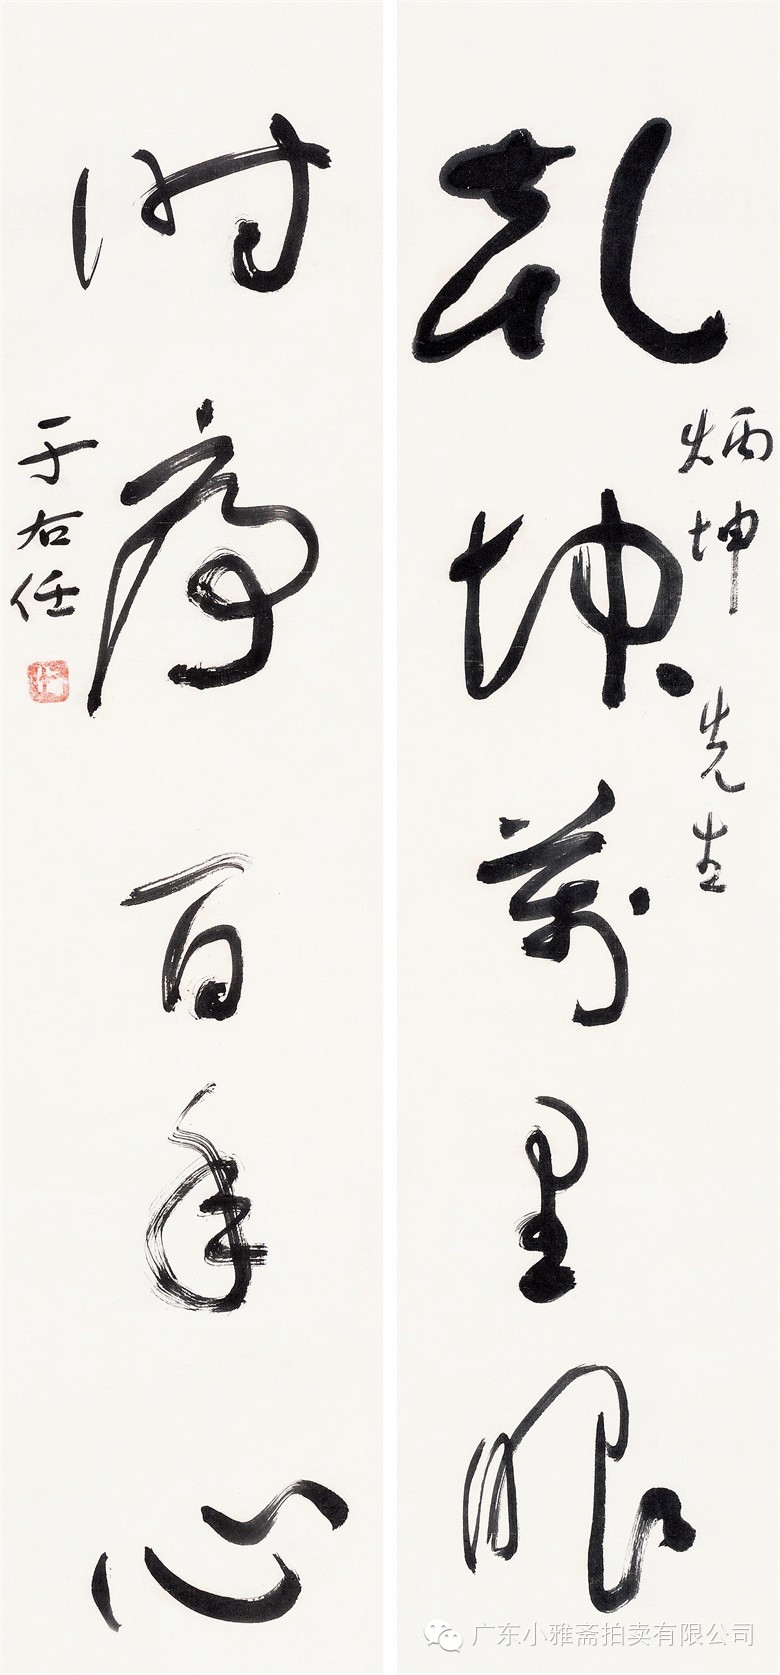 乾坤萬里眼
炳坤先生
时序百年心
于右任
广东小雅斋拍卖有限公司